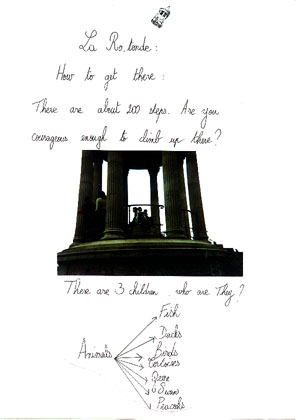 La Ro.tonde:
How to get there:
There are about 200 steps. Are you
courageous enough to climb up there?
There are 3 children, who are They?
Animals
Fish
Ducks
Birds
Tortoises
Deer
Swan
Peacocks